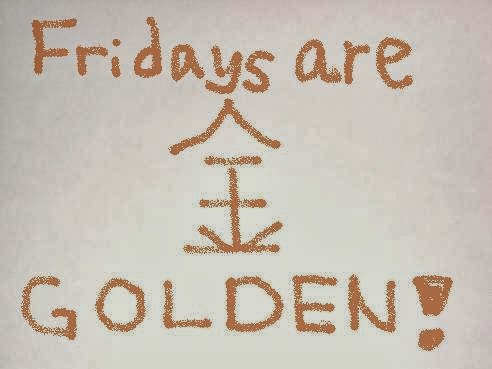 Fridays are
金
GOLDEN!